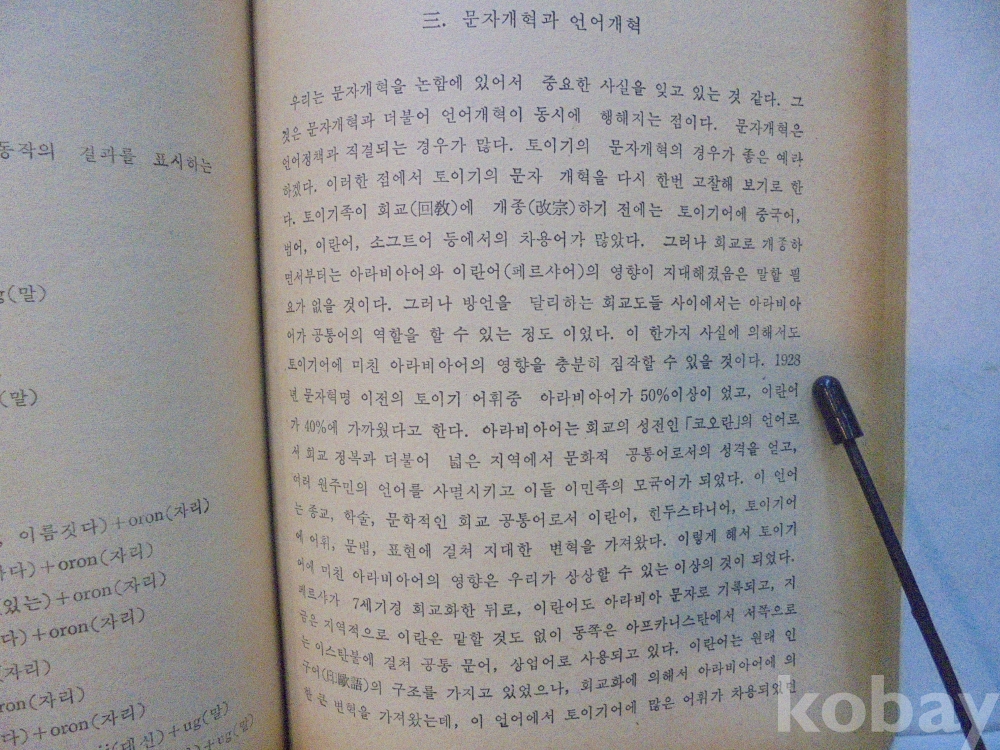 동작의 결과를 표시하는
(말)
(말)
이름짓다)+oron(자리)
다)+oron(자리)
있는)+oron(자리)
다)+oron(자리)
(자리)
ron(자리)
)+oron(자리)
(대신)+ug(말)
+ug(말)
三. 문자개혁과 언어개혁
우리는 문자개혁을 논함에 있어서 중요한 사실을 잊고 있는 것 같다. 그
것은 문자개혁과 더불어 언어개혁이 동시에 행해지는 점이다. 문자개혁은
언어정책과 직결되는 경우가 많다. 토이기의 문자개혁의 경우가 좋은 예라
하겠다. 이러한 점에서 토이기의 문자 개혁을 다시 한번 고찰해 보기로 한
다. 토이기족이 회교(回敎)에 개종(改宗)하기 전에는 토이기어에 중국어,
범어, 이란어, 소그트어 등에서의 차용어가 많았다. 그러나 회교로 개종하
면서부터는 아라비아어와 이란어(페르샤어)의 영향이 지대해졌음은 말할 필
요가 없을 것이다. 그러나 방언을 달리하는 회교도들 사이에서는 아라비아
어가 공통어의 역할을 할 수 있는 정도 이었다. 이 한가지 사실에 의해서도
토이기어에 미친 아라비아어의 영향을 충분히 짐작할 수 있을 것이다. 1928
년 문자혁명 이전의 토이기 어휘중 아라비아어가 50%이상이 었고, 이란어
가 40%에 가까웠다고 한다. 아라비아어는 회교의 성전인 「코오란」의 언어로
서 회교 정복과 더불어 넓은 지역에서 문화적 공통어로서의 성격을 얻고,
여러 원주민의 언어를 사멸시키고 이들 이민족의 모국어가 되었다. 이 언어
는 종교, 학술, 문학적인 회교 공통어로서 이란어, 힌두스타니어, 토이기어
에 어휘, 문법, 표현에 걸쳐 지대한 변혁을 가져왔다. 이렇게 해서 토이기
어에 미친 아라비아어의 영향은 우리가 상상할 수 있는 이상의 것이 되었다.
페르샤가 7세기경 회교화한 뒤로, 이란어도 아라비아 문자로 기록되고, 지
금은 지역적으로 이란은 말할 것도 없이 동쪽은 아프카니스탄에서 서쪽으로
는 이스탄불에 걸쳐 공통 문어, 상업어로 사용되고 있다. 이란어는 원래 인
구어(印歐語)의 구조를 가지고 있었으나, 회교화에 의해서 아라비아어에 의
한 큰 변혁을 가져왔는데, 이 언어에서 토이기어에 많은 어휘가 차용되었던
kobay